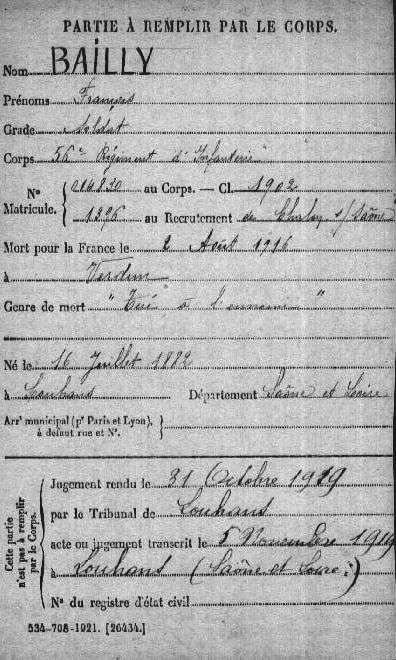 PARTIE À REMPLIR PAR LE CORPS.
Nom BAILLY
Prénoms François
Grade Soldat
Corps 56e Régiment d'Infanterie
N° Matricule. { 014830 au Corps. — Cl. 1902
1396 au Recrutement de Chalon s/Saône
Mort pour la France le 2 Août 1916
à Verdun
Genre de mort "Tué à l'ennemi"
Né le 16 Juillet 1882
à Louhans Département Saône et Loire
Arrt municipal (pr Paris et Lyon), à défaut rue et N°. }
Cette partie n'est pas à remplir par le Corps.
Jugement rendu le 31 Octobre 1919
par le Tribunal de Louhans
acte ou jugement transcrit le 5 Novembre 1919
à Louhans (Saône et Loire)
N° du registre d'état civil
534-708-1921. [26434.]